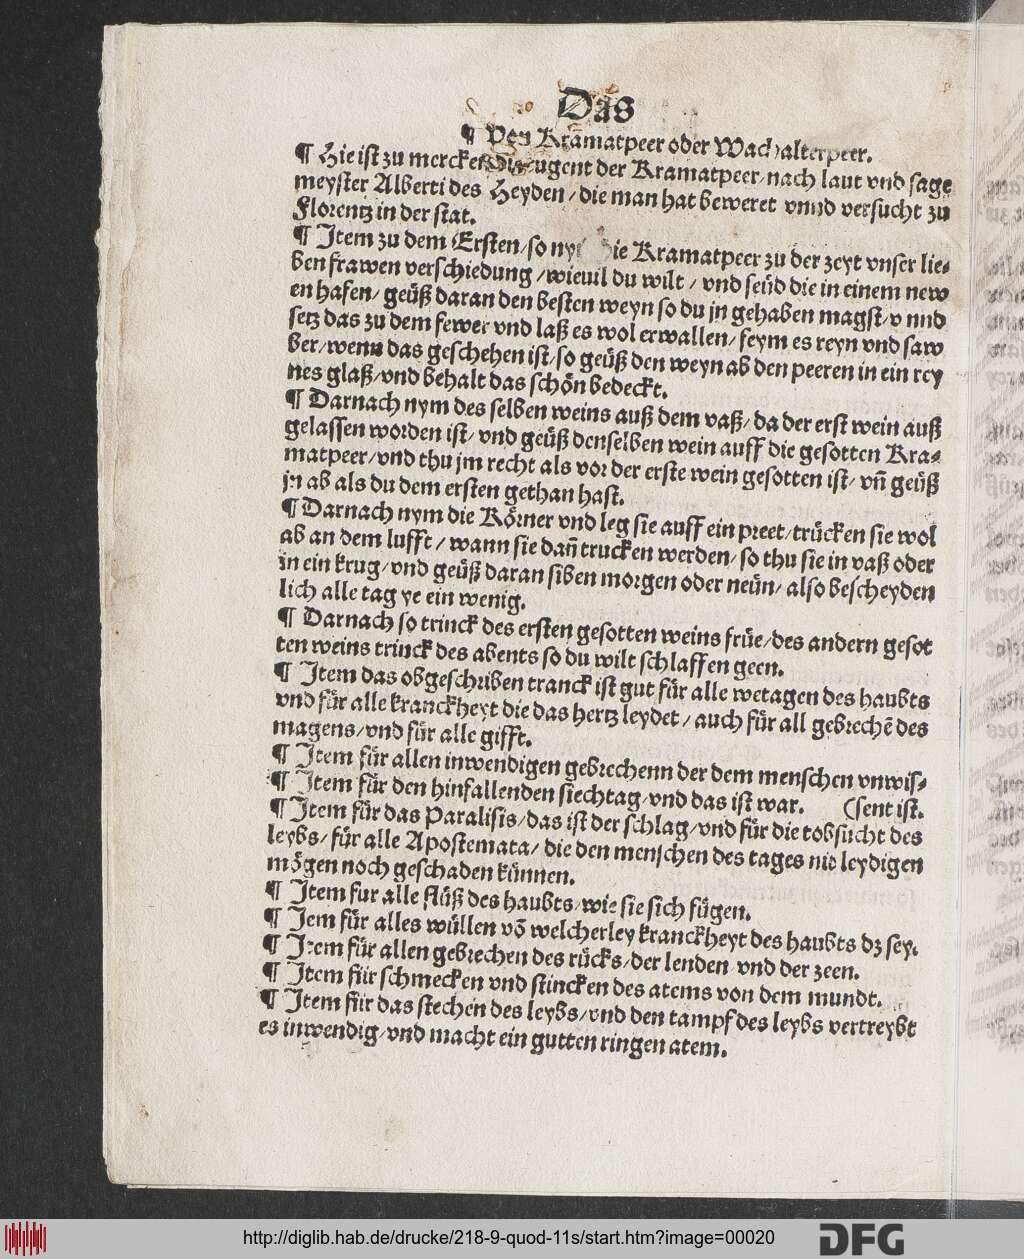 Das
¶ Von Kramatpeer oder Wachalterpeer.
¶ Hie ist zu mercken die tugent der Kramatpeer/nach laut vnd sage
meyster Alberti des Heyden/die man hat beweret vnnd versucht zu
Florentz in der stat.
¶ Item zu dem Ersten/so nym die Kramatpeer zu der zeyt vnser lie⸗
ben frawen verschiedung/wieuil du wilt/vnd seüd die in einem new
en hafen/geüß daran den besten weyn so du jn gehaben magst/v nnd
setz das zu dem fewer vnd laß es wol erwallen/feym es reyn vnd saw
ber/wenn das geschehen ist/so geüß den weyn ab den peeren in ein rey
nes glaß/vnd behalt das schön bedeckt.
¶ Darnach nym des selben weins auß dem vaß/da der erst wein auß
gelassen worden ist/vnd geüß denselben wein auff die gesotten Kra⸗
matpeer/vnd thu jm recht als vor der erste wein gesotten ist/vñ geüß
jn ab als du dem ersten gethan hast.
¶ Darnach nym die Körner vnd leg sie auff ein preet/trücken sie wol
ab an dem lufft/wann sie dañ trucken werden/so thu sie in vaß oder
in ein krug/vnd geüß daran siben morgen oder neün/also bescheyden
lich alle tag ye ein wenig.
¶ Darnach so trinck des ersten gesotten weins früe/des andern gesot
ten weins trinck des abents so du wilt schlaffen geen.
¶ Item das obgeschriben tranck ist gut für alle wetagen des haubts
vnd für alle kranckheyt die das hertz leydet/auch für all gebrechẽ des
magens/vnd für alle gifft.
¶ Item für allen inwendigen gebrechenn der dem menschen vnwis⸗
¶ Item für den hinfallenden siechtag/vnd das ist war. (sent ist.
¶ Item für das Paralisis/das ist der schlag/vnd für die tobsucht des
leybs/für alle Apostemata/die den menschen des tages nie leydigen
mögen noch geschaden künnen.
¶ Item fur alle flüß des haubts/wie sie sich fügen.
¶ Jem für alles wüllen võ welcherley kranckheyt des haubts dz sey.
¶ Item für allen gebrechen des rücks/der lenden/vnd der zeen.
¶ Item für schmecken vnd stincken des atems von dem mundt.
¶ Item für das stechen des leybs/vnd den tampf des leybs vertreybt
es inwendig/vnd macht ein gutten ringen atem.
http://diglib.hab.de/drucke/218-9-quod-11s/start.htm?image=00020
DFG